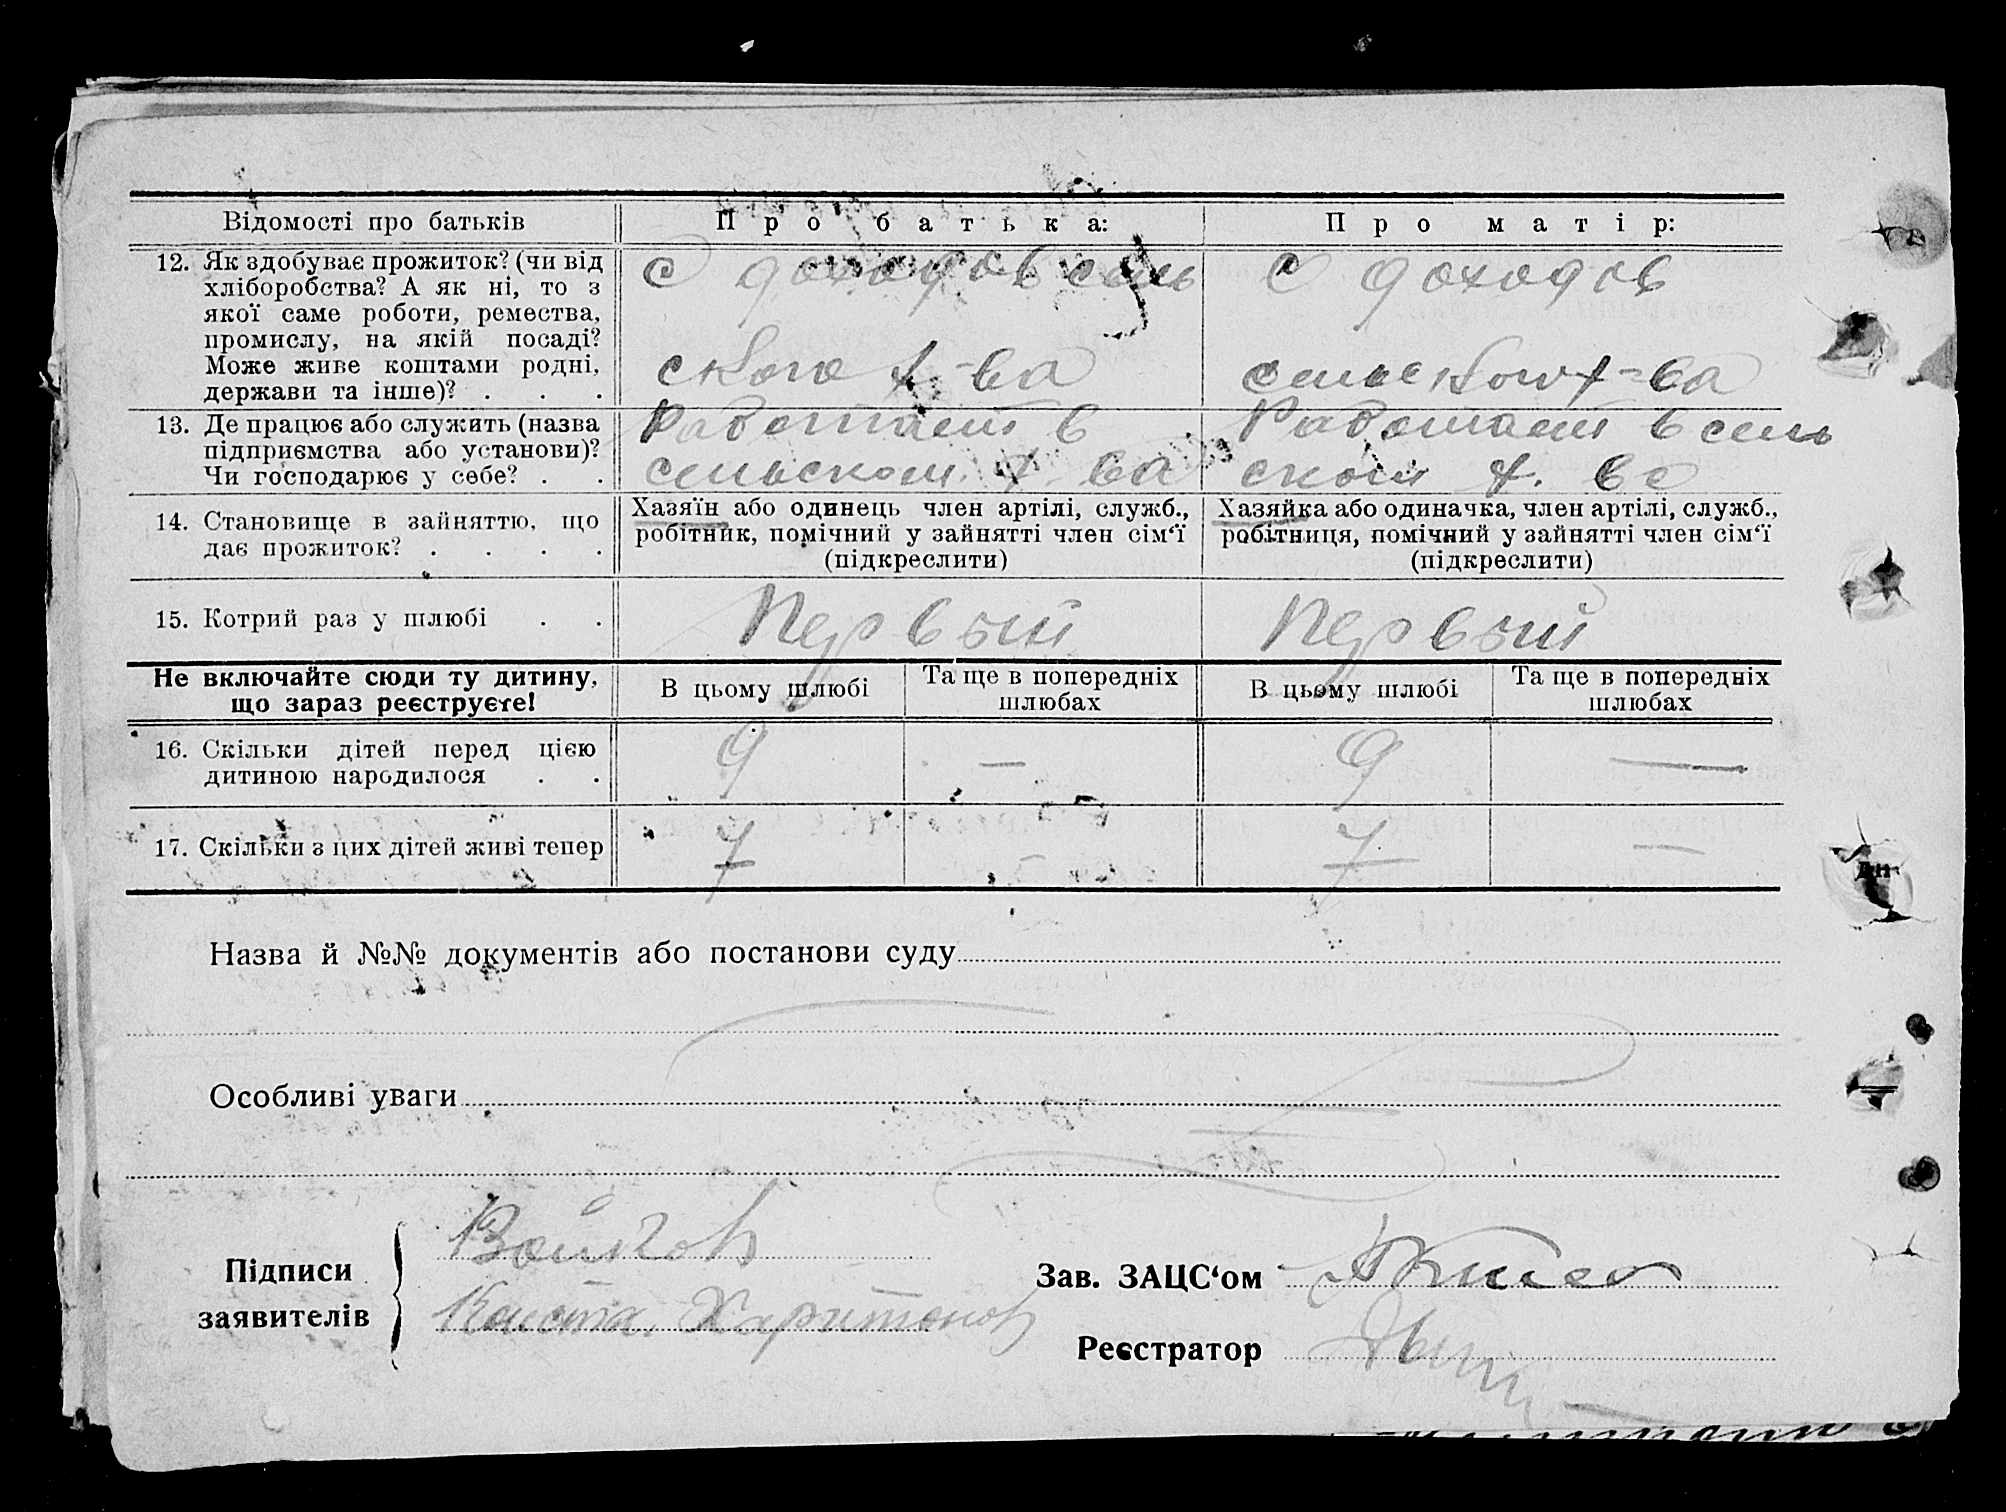 Відомості про батьків
Про батька:
Про матір:
12. Як здобуває прожиток? (чи від
хліборобства? А як ні, то з
якої саме роботи, ремества,
промислу, на якій посаді?
Може живе коштами родні,
держави та інше)? . . .
С доходов сель
ского х-ва
С доходов
сельского х-ва
13. Де працює або служить (назва
підприємства або установи)?
Чи господарює у себе? . .
Работает в
сельском х-ва
Работает в сель
ском х. ве
14. Становище в зайняттю, що
дає прожиток? . . . .
Хазяїн або одинець член артілі, служб.,
робітник, помічний у зайнятті член сім‘ї
(підкреслити)
Хазяйка або одиначка, член артілі, служб.,
робітниця, помічний у зайнятті член сім‘ї
(підкреслити)
15. Котрий раз у шлюбі . .
Первый
Первый
Не включайте сюди ту дитину,
що зараз реєструєте!
В цьому шлюбі
Та ще в попередніх
шлюбах
В цьому шлюбі
Та ще в попередніх
шлюбах
16. Скільки дітей перед цією
дитиною народилося . .
9
—
9
—
17. Скільки з цих дітей живі тепер
7
7
—
Назва й №№ документів або постанови суду
Особливі уваги
Підписи
заявителів
Войков
Конста. Харитонов
Зав. ЗАЦС‘ом
Реєстратор